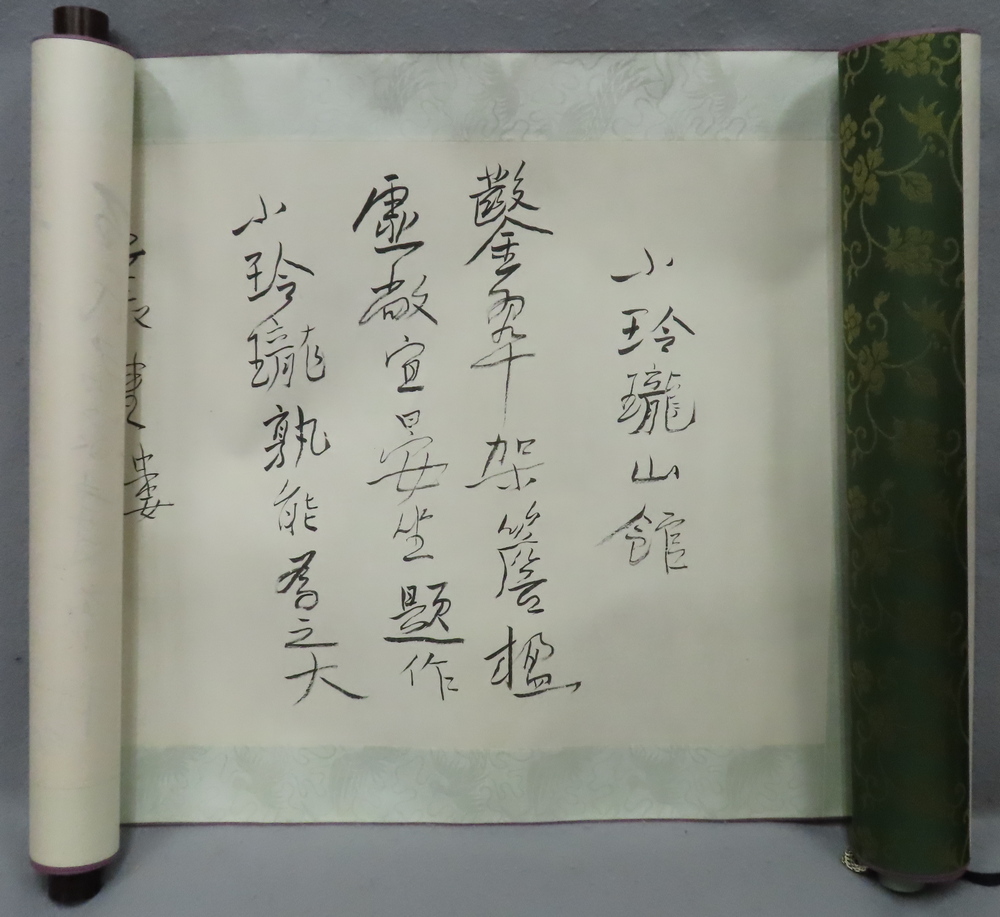 小玲瓏山館
鑿翠架簷楹
虛敞宜晏坐題作
小玲瓏孰能為之大
婁